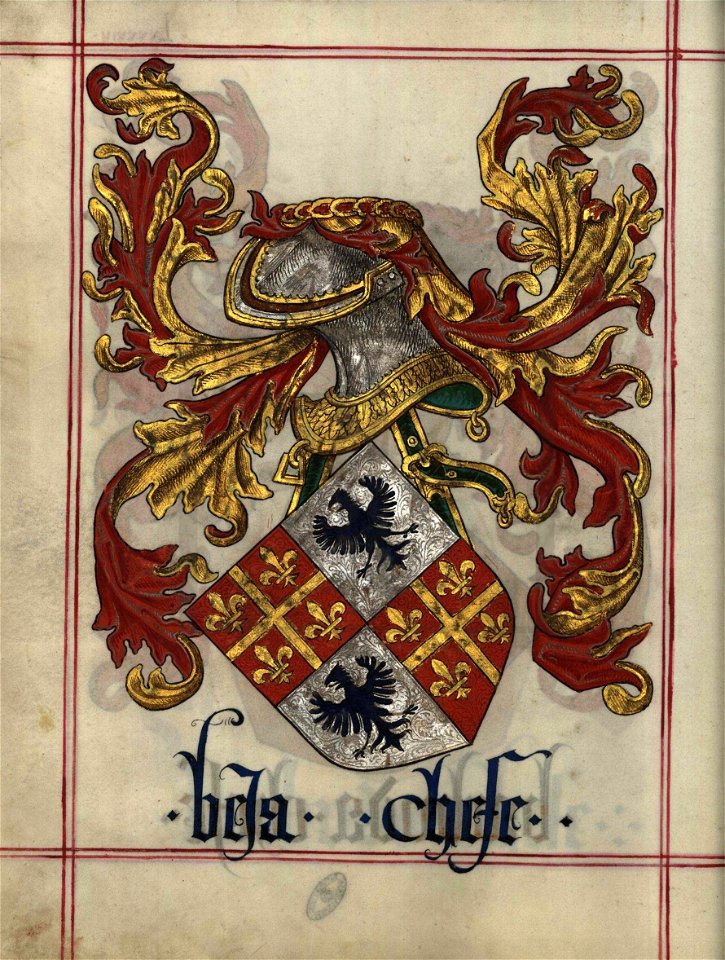 ·beja· ·chefe··